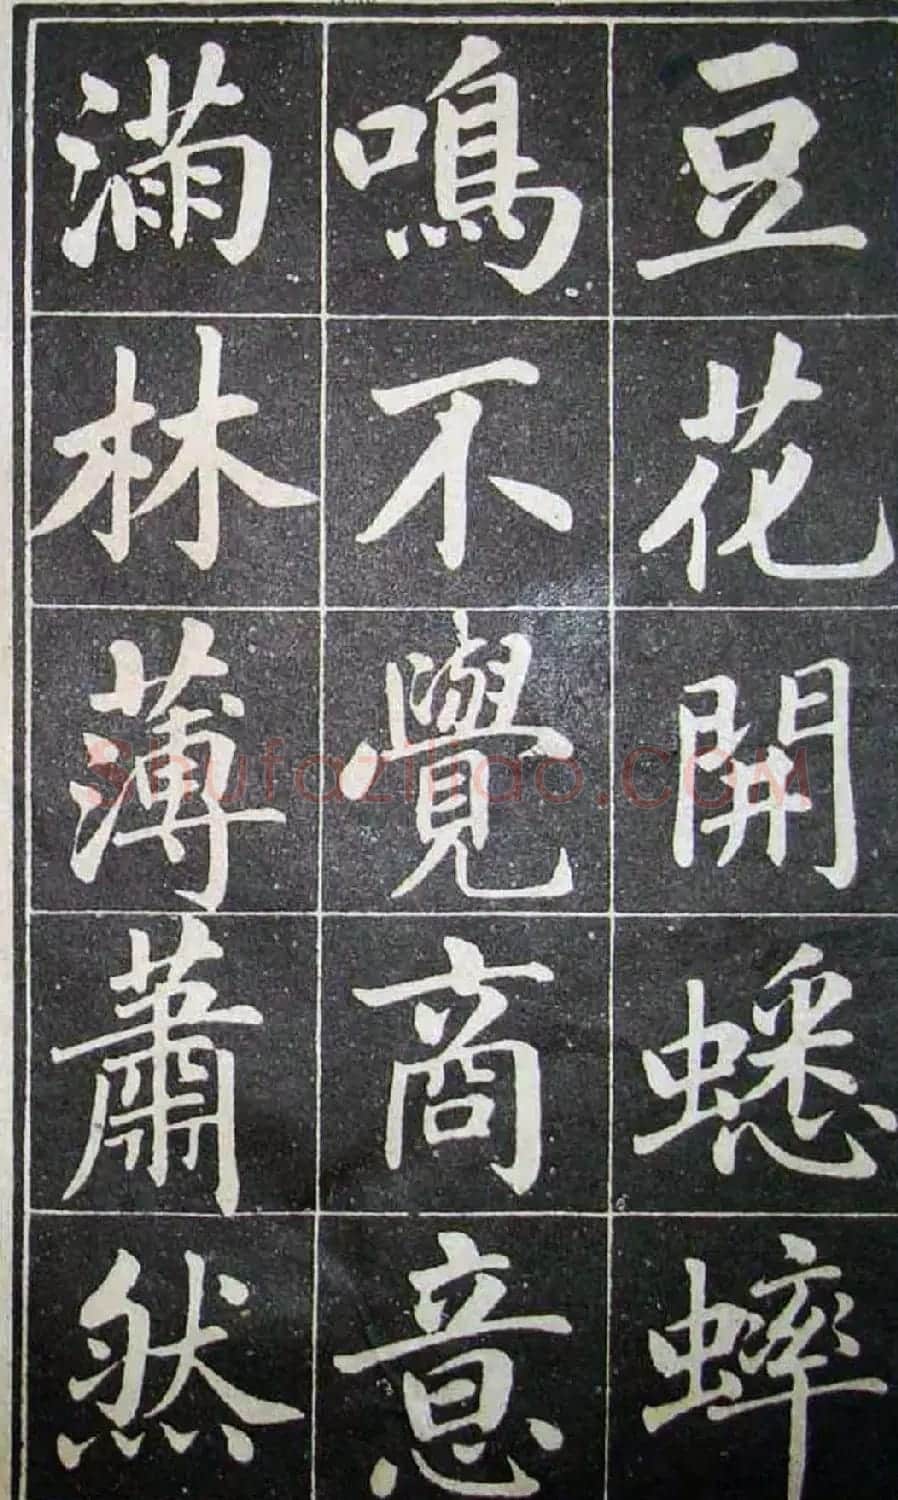 豆花開蟋蟀
鳴不覺商意
滿林薄蕭然
Shufaziliao.COM